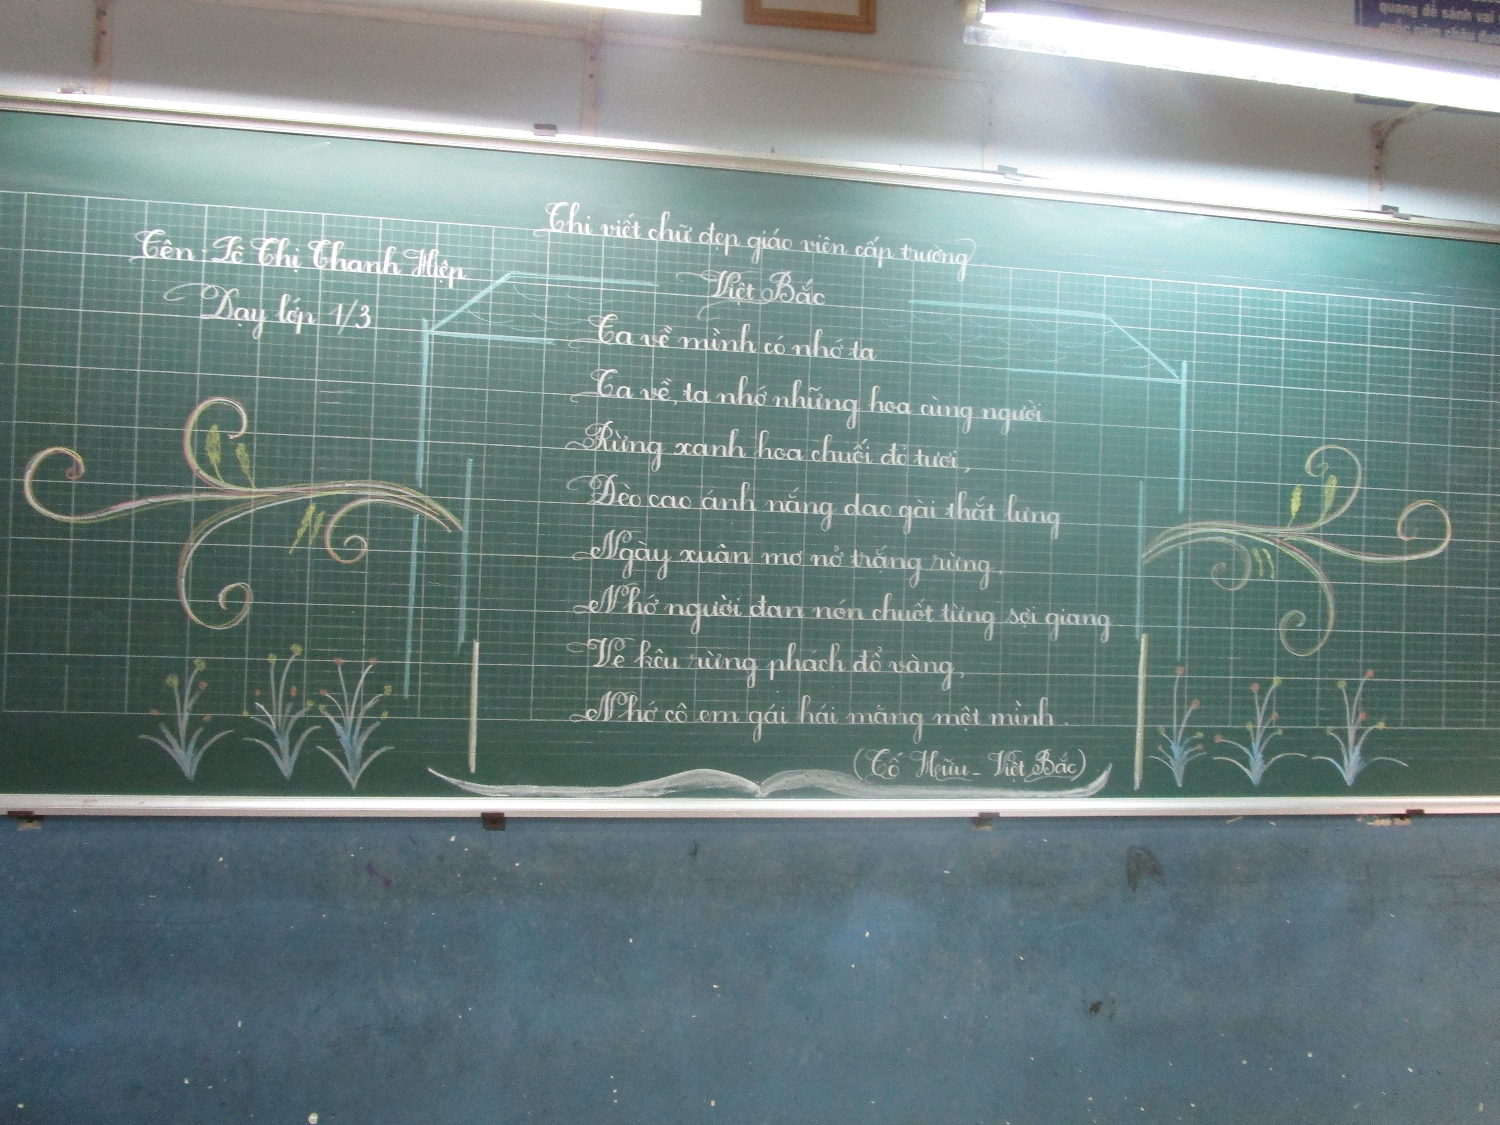 quang để sánh vai
Thi viết chữ đẹp giáo viên cấp trường
Tên: Tô Thị Thanh Hiệp
Dạy lớp 1/3
Việt Bắc
Ta về mình có nhớ ta
Ta về, ta nhớ những hoa cùng người
Rừng xanh hoa chuối đỏ tươi,
Đèo cao ánh nắng dao gài thắt lưng
Ngày xuân mơ nở trắng rừng,
Nhớ người đan nón chuốt từng sợi giang
Ve kêu rừng phách đổ vàng,
Nhớ cô em gái hái măng một mình.
(Tố Hữu - Việt Bắc)